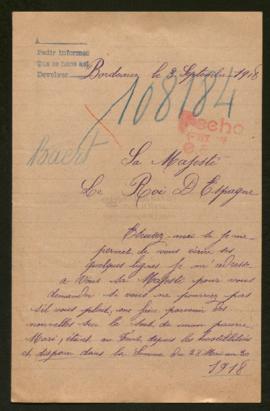 A
Pedir informes
Que se hace así
Devolver
Bordeaux le 3 Septembre 1918
108184
Hecho
Baert
Sa Majesté
Le Roi D'Espagne
Excusez-moi si je me
permet de vous écrire ces
quelques lignes je m'adresse
a Vous Sa Majesté pour vous
demander si vous ne pourriez pas
s'il vous plait, me faire parvenir des
nouvelles sur le sort de mon pauvre
Mari, étant en depuis les hostilités
et disparu dans la Somme du 28 Mars au 30
1918